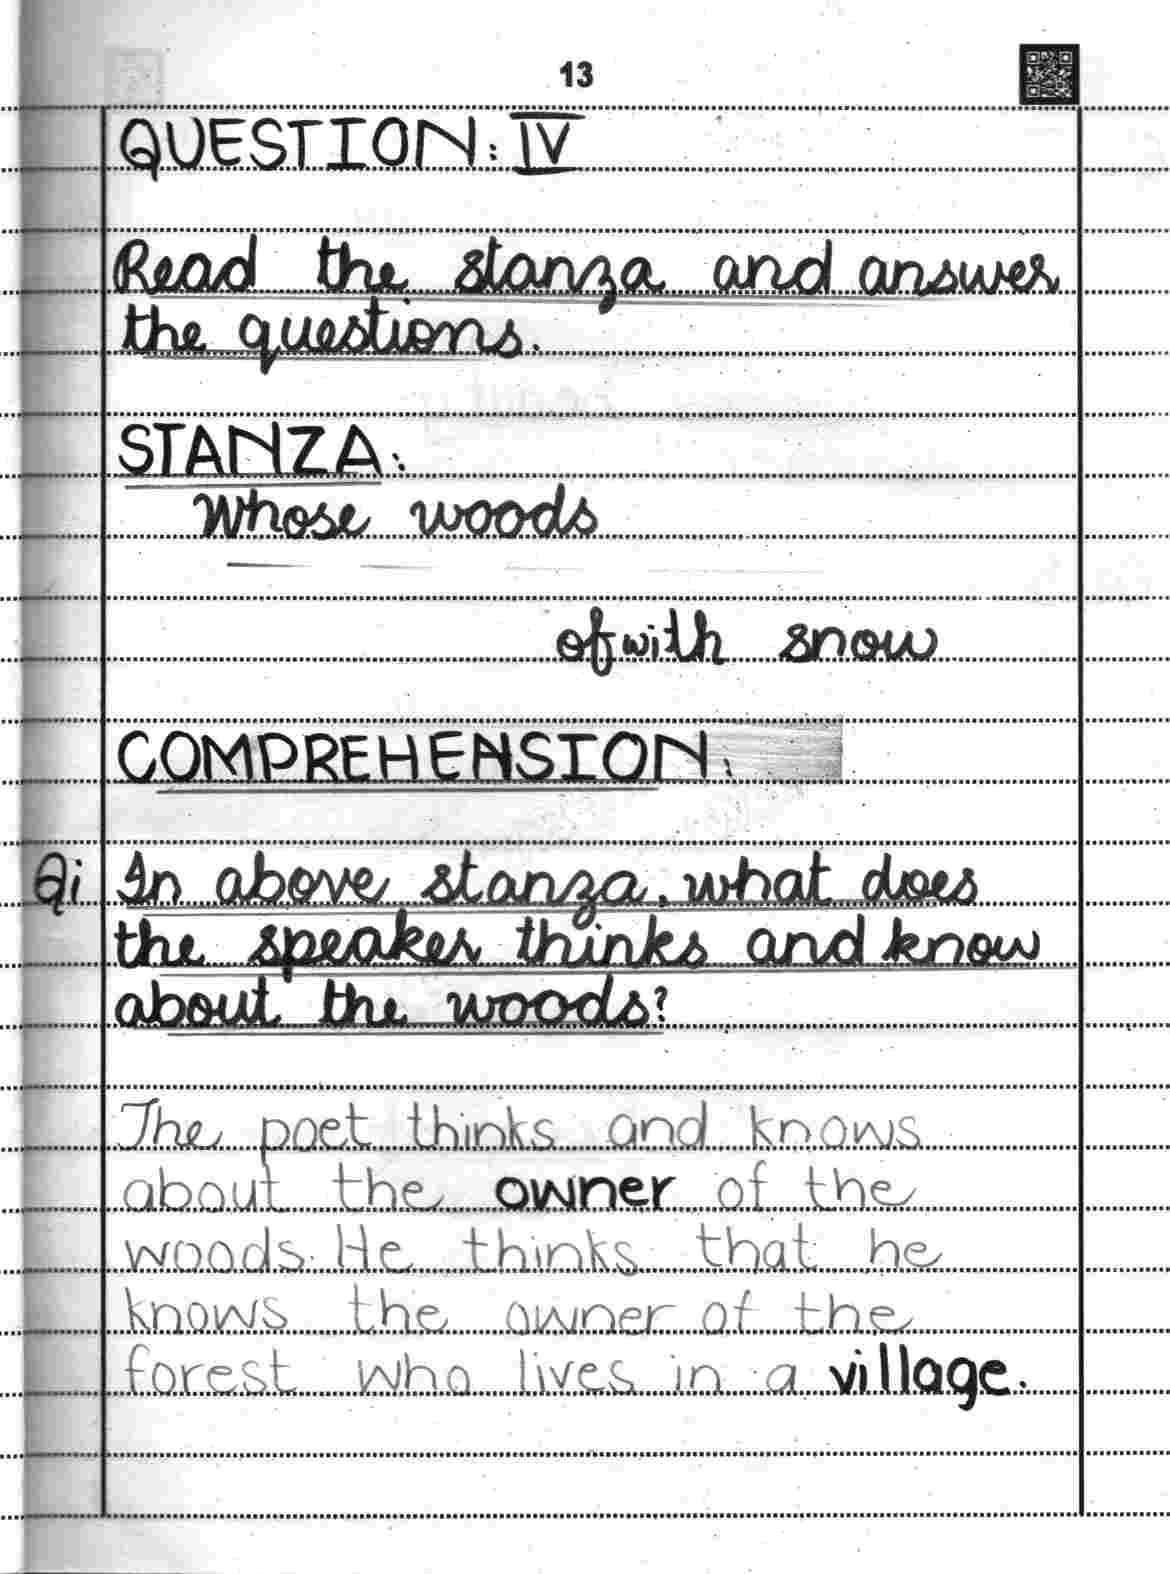 13
QUESTION: IV
Read the stanza and answer
the questions.
STANZA:
Whose woods
of with snow
COMPREHENSION:
Qi In above stanza, what does
the speaker thinks and know
about the woods?
The poet thinks and knows
about the owner of the
woods. He thinks that he
knows the owner of the
forest who lives in a village.